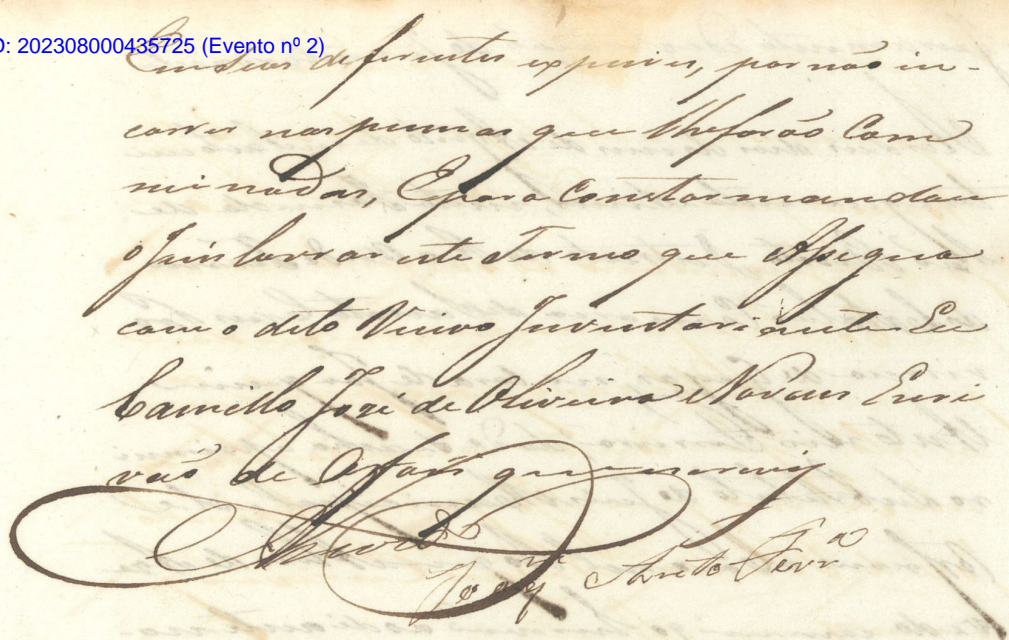 D: 202308000435725 (Evento nº 2)
em seus diferentes expecies, por não in-
correr nas pennas que lhe forão Com
minadas, E para Constar mandou
o Juis lavrar este Termo que Assigna
com o dito Viuvo Inventariante Eu
Camillo José de Oliveira Novaes Escri
vão de Orfaõs que escrevy
Joaqm Netto Ferrª